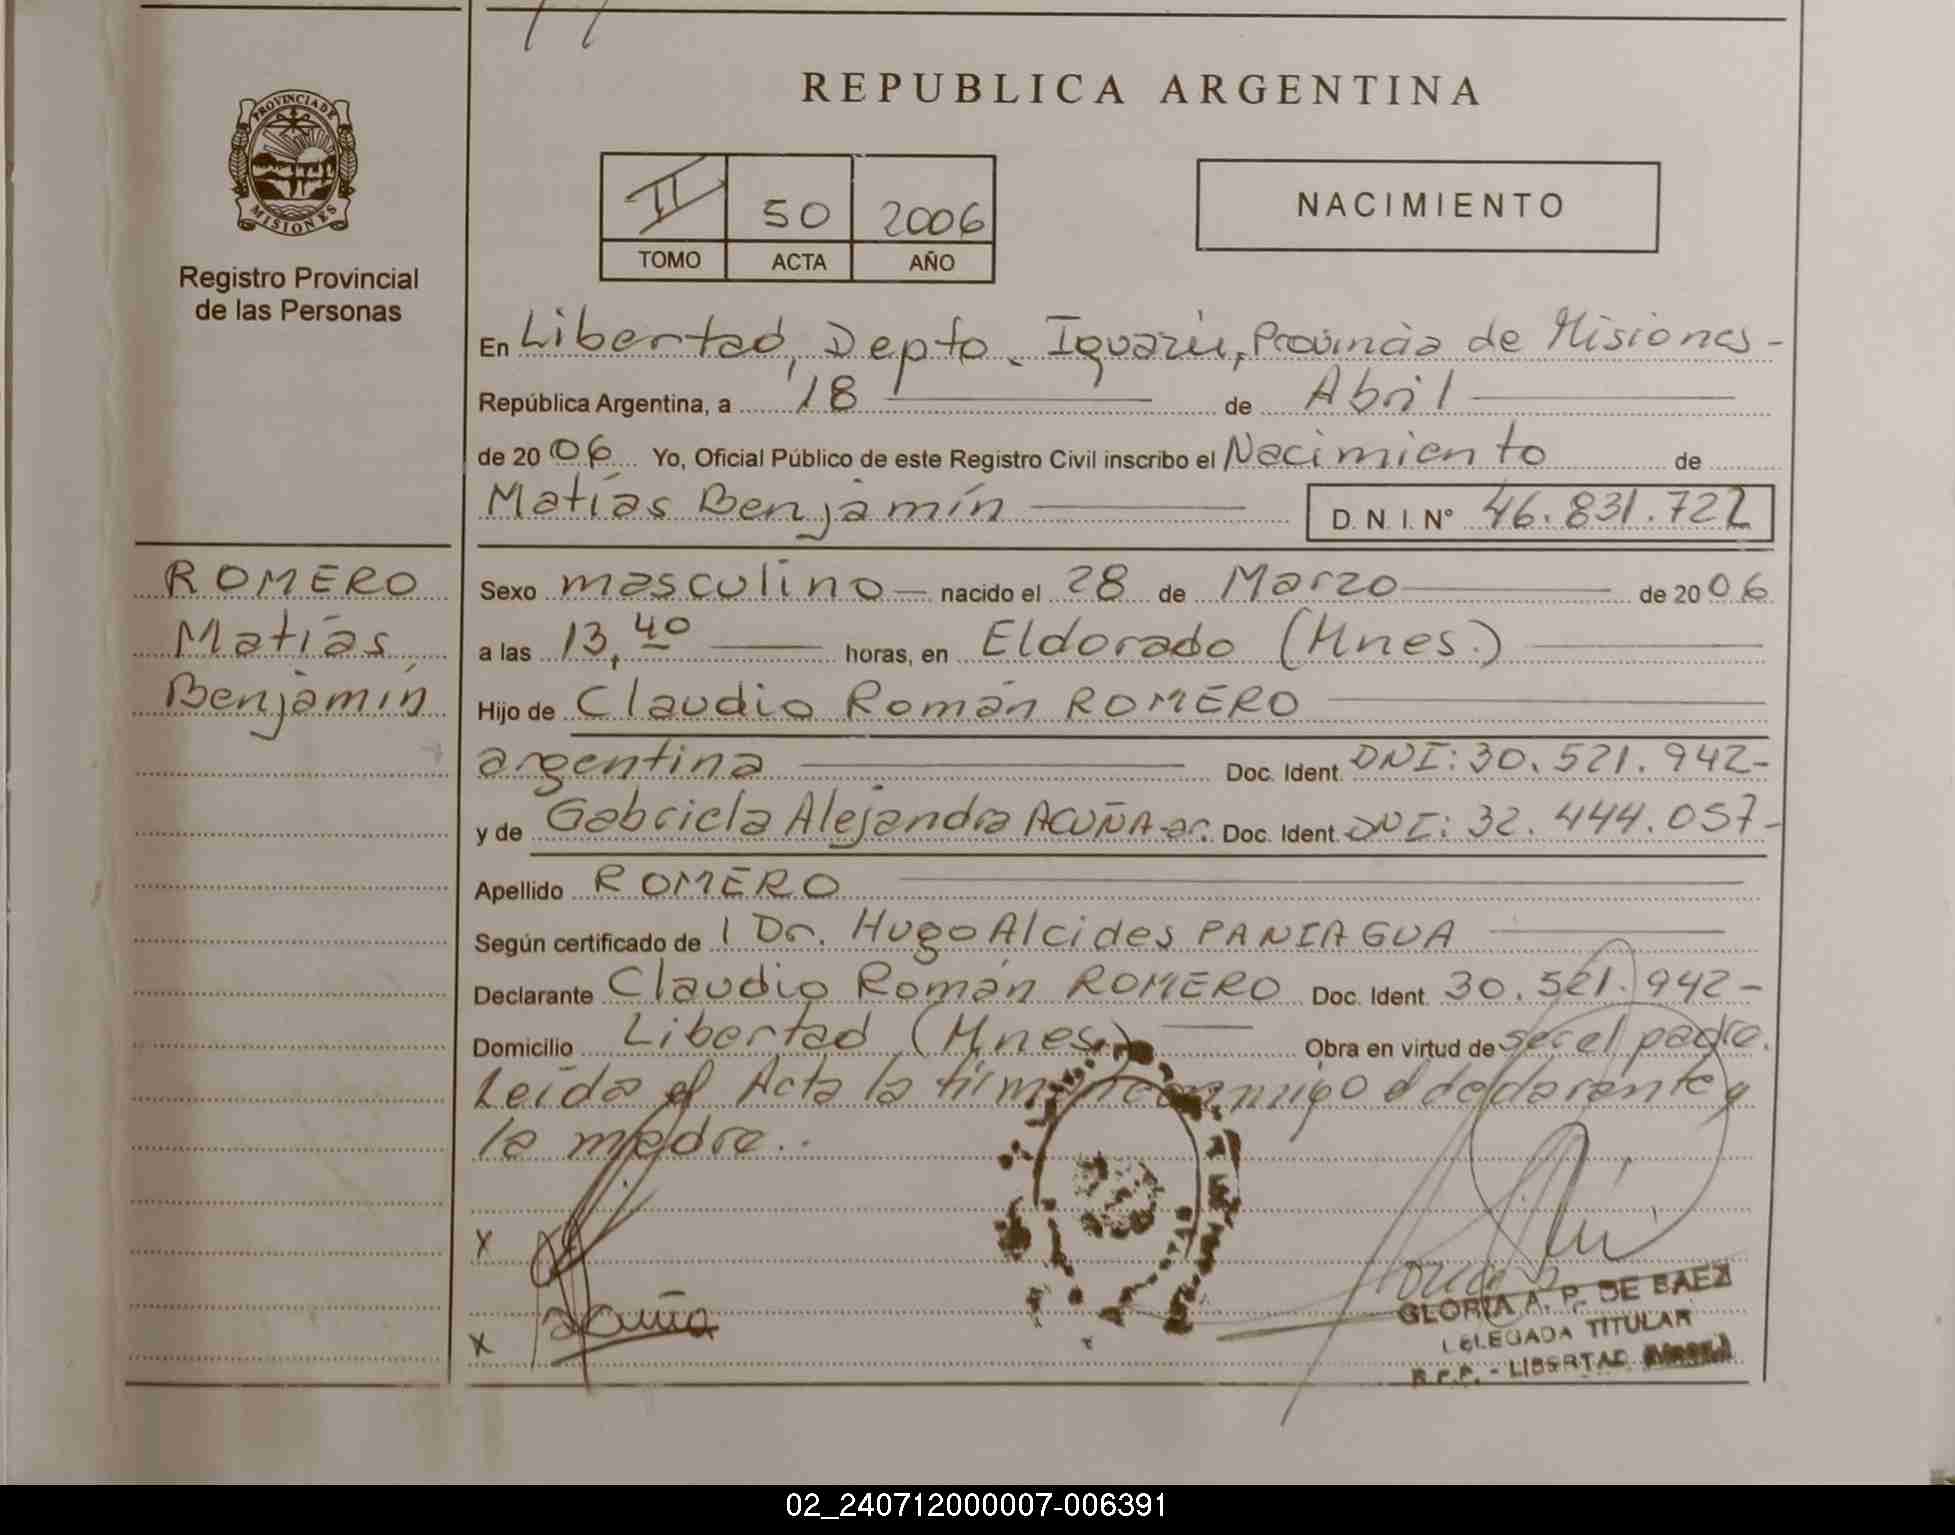 REPUBLICA ARGENTINA
PROVINCIA DE
MISIONES
Registro Provincial
de las Personas
II 50 2006
TOMO ACTA AÑO
NACIMIENTO
En Libertad, Depto. Iguazú, Provincia de Misiones -
República Argentina, a 18 de Abril
de 2006 Yo, Oficial Público de este Registro Civil inscribo el Nacimiento de
Matías Benjamín D. N. I. N° 46.831.722
ROMERO
Matías
Benjamín
Sexo masculino nacido el 28 de Marzo de 2006
a las 13,40 horas, en Eldorado (Mnes.)
Hijo de Claudio Román ROMERO
argentina Doc. Ident. DNI: 30.521.942-
y de Gabriela Alejandra ACUÑA-ar. Doc. Ident. DNI: 32.444.057-
Apellido ROMERO
Según certificado de l Dr. Hugo Alcides PANIAGUA
Declarante Claudio Román ROMERO Doc. Ident. 30.521.942-
Domicilio Libertad (Mnes.) Obra en virtud de ser el padre.
Leída el Acta la firma conmigo el declarante y
la madre.
X
X Acuña
GLORIA A. P. DE BAEZ
DELEGADA TITULAR
R.P.P. - LIBERTAD (Mnes.)
02_240712000007-006391